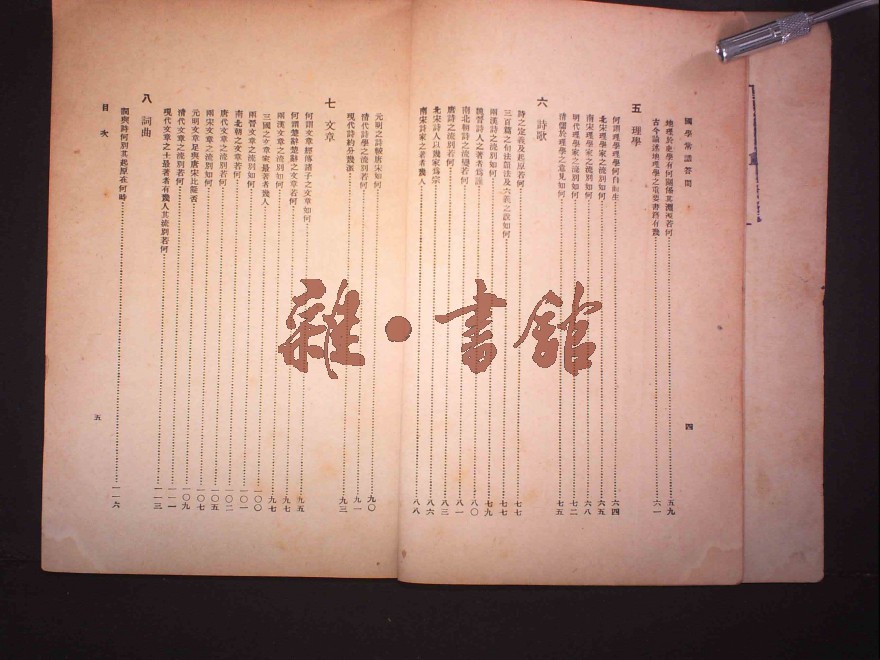 國學常識答問
地理於史學有何關係其淵源若何 五九
古今論述地理學之重要書籍有幾 六一
五 理學
何謂理學理學何自而生 六四
北宋理學家之流別如何 六五
南宋理學家之流別如何 六八
明代理學家之流別如何 七二
清儒於理學之意見如何 七五
六 詩歌
詩之定義及起原若何 七七
三百篇之句法韻法及六義之說如何 七七
兩漢詩之流別如何 七九
魏晉詩人之著者為誰 八〇
南北朝詩之流變若何 八一
唐詩之流別若何 八三
北宋詩人以幾家為宗 八六
南宋詩家之著者幾人 八八
四
元明之詩視唐宋如何 九〇
清代詩學之流別若何 九一
現代詩約分幾派 九三
七 文章
何謂文章經傳諸子之文章如何 九五
何謂楚辭楚辭之文章若何 九七
兩漢文章之流別如何 九七
三國之文章家最著者幾人 九七
兩晉文章之流別如何 一〇〇
南北朝之文章若何 一〇一
唐代文章之流別若何 一〇二
兩宋文章之流別如何 一〇五
元明文章足與唐宋比隆否 一〇七
清代文章之流別若何 一〇九
現代文章之士最著者有幾人其流別若何 一一一
一一三
八 詞曲
詞與詩何別其起原在何時 一一六
目次
五
雜·書館